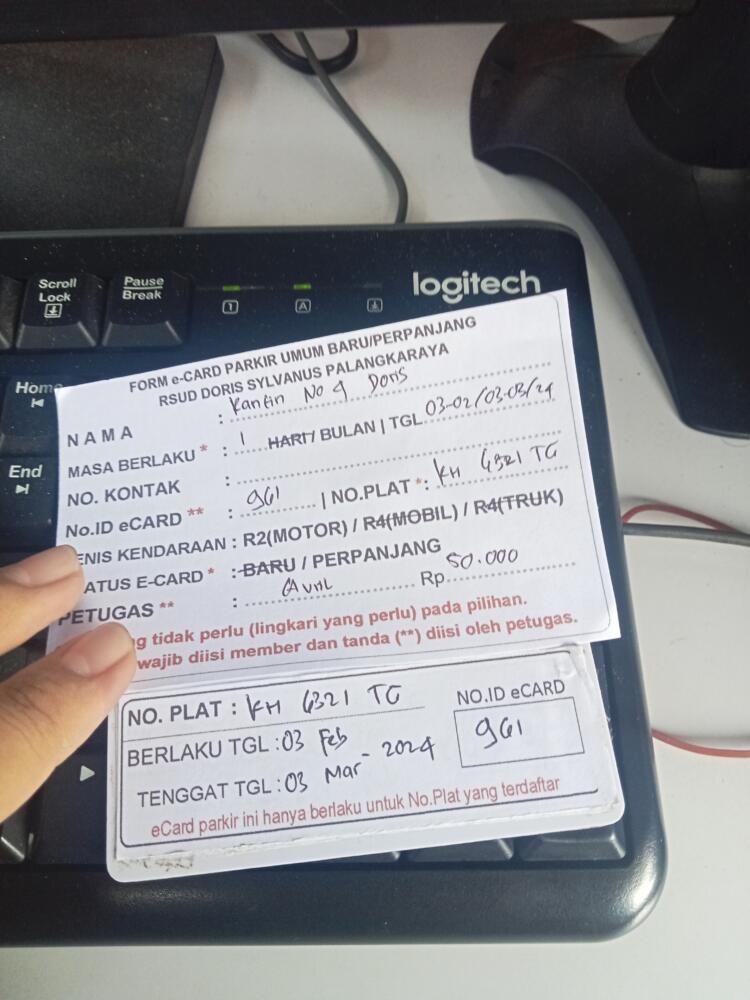 Scroll Lock
Pause Break
1
A
logitech
Home
End
FORM e-CARD PARKIR UMUM BARU/PERPANJANG
RSUD DORIS SYLVANUS PALANGKARAYA
NAMA : Kantin No 4 Doris
MASA BERLAKU * : 1 HARI / BULAN | TGL 03-02/03-03/24
NO. KONTAK :
No.ID eCARD ** : 961 | NO.PLAT *: KH 6321 TG
ENIS KENDARAAN : R2(MOTOR) / R4(MOBIL) / R4(TRUK)
ATUS E-CARD * : BARU / PERPANJANG
PETUGAS ** : Rp. 50.000
g tidak perlu (lingkari yang perlu) pada pilihan.
wajib diisi member dan tanda (**) diisi oleh petugas.
NO. PLAT : KH 6321 TG
NO.ID eCARD
961
BERLAKU TGL : 03 Feb
TENGGAT TGL : 03 Mar - 2024
eCard parkir ini hanya berlaku untuk No.Plat yang terdaftar